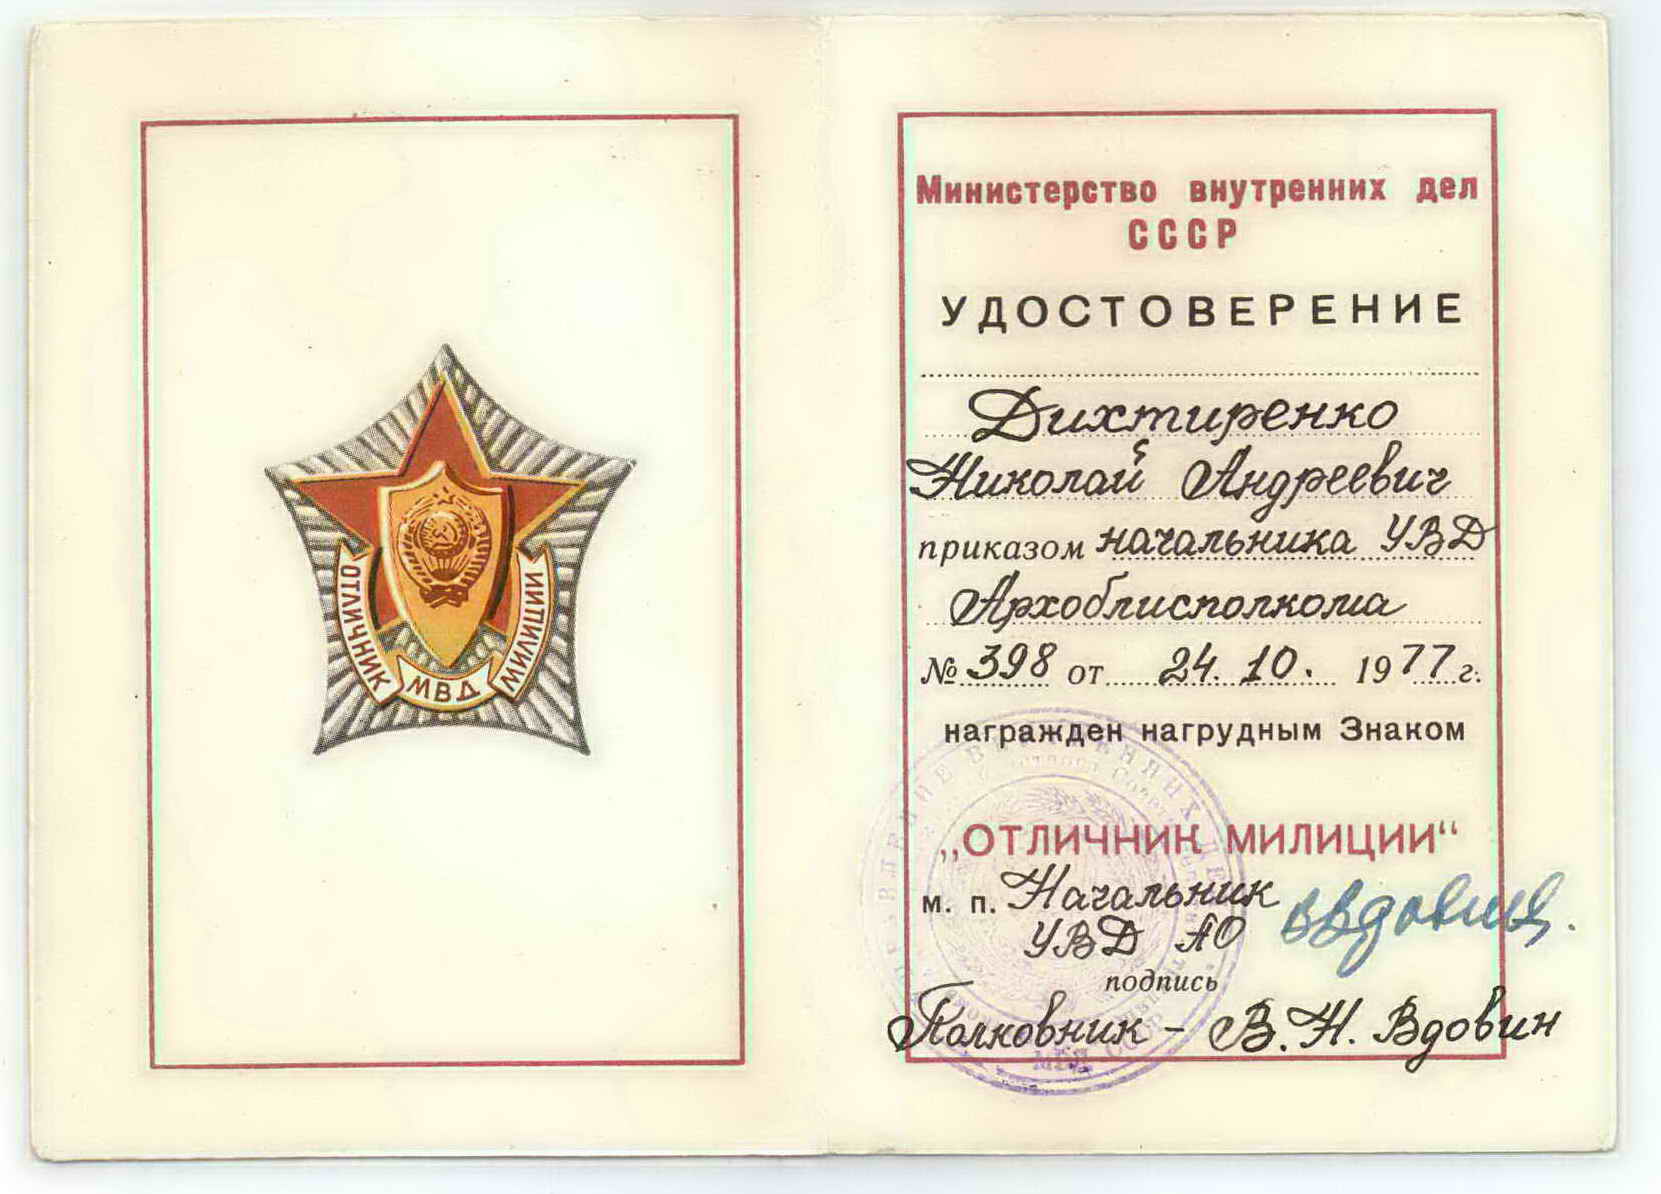 ОТЛИЧНИК
МВД
МИЛИЦИИ
Министерство внутренних дел
СССР
УДОСТОВЕРЕНИЕ
Дихтиренко
Николай Андреевич
приказом начальника УВД
Архоблисполкома
№ 398 от 24.10. 1977 г.
награжден нагрудным Знаком
„ОТЛИЧНИК МИЛИЦИИ“
м. п. Начальник
УВД АО ВВдовин
подпись
Полковник - В.Н. Вдовин
МВД СССР